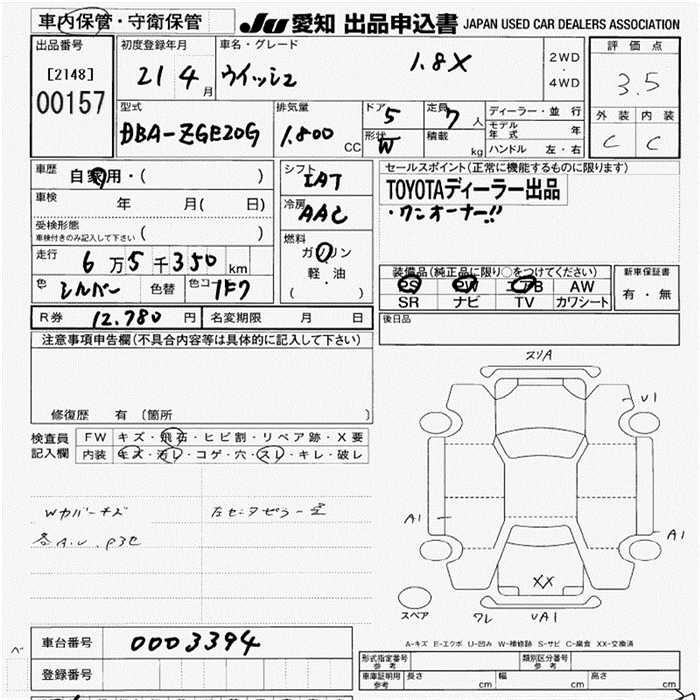 車内保管・守衛保管
JU 愛知 出品申込書 JAPAN USED CAR DEALERS ASSOCIATION
出品番号
[2148]
00157
初度登録年月
21 4 月
車名・グレード
ウイッシュ 1.8X
2WD
・
4WD
評価点
3.5
外装 内装
C C
型式
DBA-ZGE20G
排気量
1.800 CC
ドア 5
形状 W
定員 7 人
積載 kg
ディーラー・並行
モデル年式 年
ハンドル 左・右
車歴 自家用・( )
車検 年 月( 日)
受検形態
車検付きのみ記入して下さい ( )
走行 6 万 5 千 350 km
色 シルバー 色替 色コ 1F7
シフト IAT
冷房 AAC
燃料
ガソリン
軽・油
( )
セールスポイント(正常に機能するものに限ります)
TOYOTAディーラー出品
・ワンオーナー!!
装備品(純正品に限り○をつけてください)
PS PW エアB AW
SR ナビ TV カワシート
新車保証書
有・無
R券 12.780 円 名変期限 月 日
後日品
注意事項申告欄(不具合内容等は具体的に記入して下さい)
修復歴 有 〔箇所 〕
検査員
記入欄
FW キズ・飛石・ヒビ割・リペア跡・X要
内装 キズ・汚レ・コゲ・穴・スレ・キレ・破レ
Wカバーキズ
各A.U.
スリA
U1
A1
A1
XX
スペア
ワレ
UA1
A-キズ E-エクボ U-凹み W-補修跡 S-サビ C-腐食 XX-交換済
車台番号 0003394
登録番号
形式指定番号
参考
類別区分番号
参考
車庫証明用
参考
長さ cm 幅 cm 高さ cm